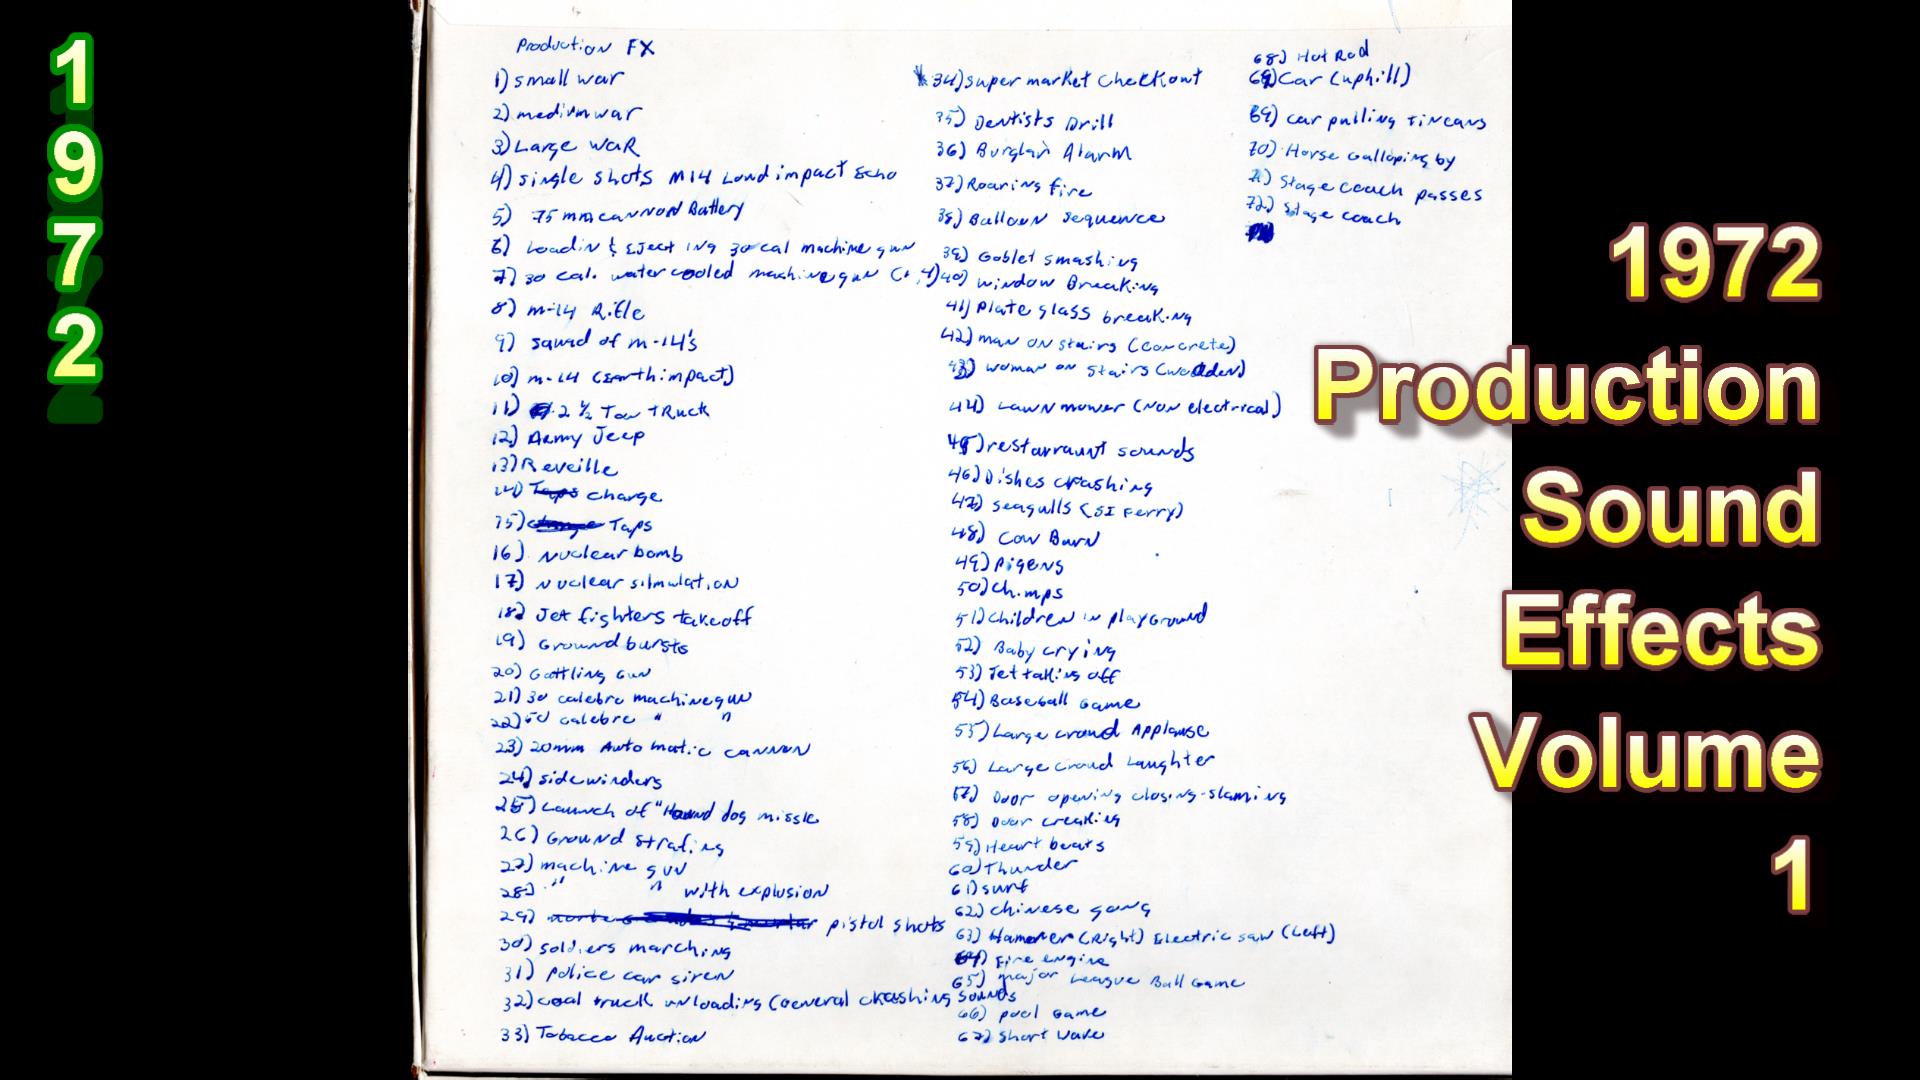 1
9
7
2
Production FX
1) small war
2) medium war
3) Large WaR
4) single shots M14 Loud impact Echo
5) 75 mm cannon Battery
6) Loadin & Eject ing 30 cal machine gun
7) 30 cal. water cooled machine gun
8) m-14 Rifle
9) squad of m-14's
10) m-14 (Earth impact)
11) 2 ½ Ton tRuck
12) Army Jeep
13) Reveille
14) Taps charge
15) charge Taps
16) Nuclear bomb
17) nuclear silmulation
18) Jet fighters takeoff
19) Ground bursts
20) Gattling Gun
21) 30 calebre machinegun
22) 50 calebre " "
23) 20mm Automatic cannon
24) sidewinders
25) Launch of "Hound dog missle
26) Ground Strafing
27) machine gun
28) " " with explosion
29) pistol shots
30) soldiers marching
31) police car siren
32) coal truck unloading (General crashing sounds
33) Tobacco Auction
34) super market checkout
35) Dentists Drill
36) Burglar Alarm
37) Roaring fire
38) Balloon Sequence
39) Goblet smashing
40) window Breaking
41) Plate glass breaking
42) man on stairs (concrete)
43) woman on stairs (wodden)
44) Lawn mower (non electrical)
45) restarraunt sounds
46) Dishes crashing
47) seagulls (SI Ferry)
48) Cow Barn
49) Pigens
50) Chimps
51) Children in playGround
52) Baby crying
53) Jet taking off
54) Baseball Game
55) Large crowd Applause
56) Large Crowd Laughter
57) Door opening closing-slaming
58) Door creaking
59) Heart beats
60) Thunder
61) surf
62) chinese gong
63) Hammer (Right) Electric saw (Left)
64) Fire engine
65) major League Ball Game
66) pool Game
67) Short wave
68) Hot Rod
69) Car (uphill)
69) car pulling tin cans
70) Horse Galloping by
71) Stage coach passes
72) Stage coach
1972
Production
Sound
Effects
Volume
1